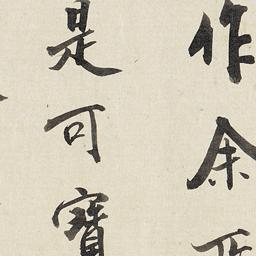 作余
是可寶